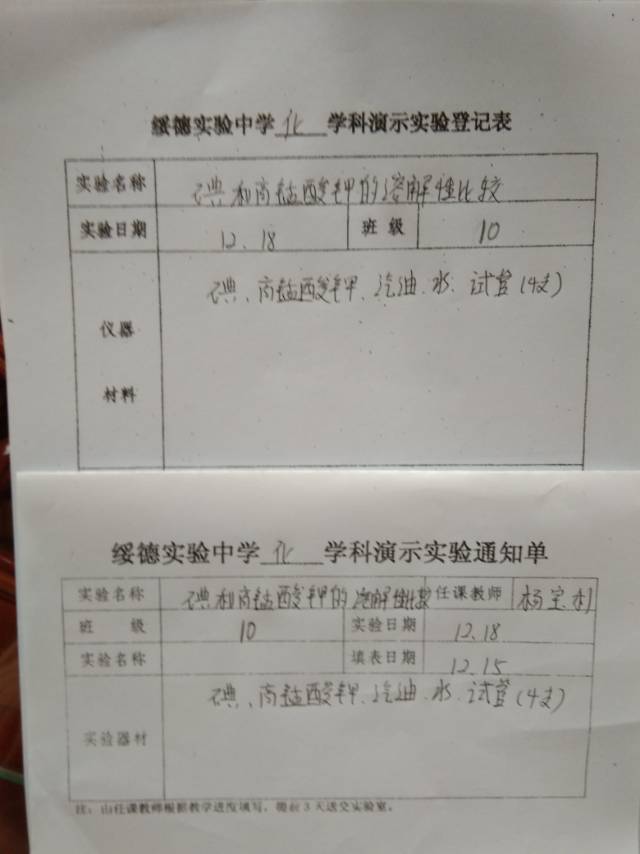 绥德实验中学 化 学科演示实验登记表
实验名称 碘和高锰酸钾的溶解性比较
实验日期 12.18 班级 10
碘、高锰酸钾、汽油、水、试管(4支)
仪器
材料
绥德实验中学 化 学科演示实验通知单
实验名称 碘和高锰酸钾的溶解性比较 任课教师 杨宝利
班 级 10 实验日期 12.18
实验名称 填表日期 12.15
碘、高锰酸钾、汽油、水、试管(4支)
实验器材
注：由任课教师根据教学进度填写，提前3天送交实验室。